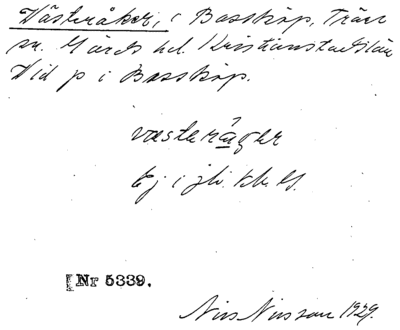 Västeråker, i Bassköp, Trän
sn. Gärds hd. Kristianstads län
Vid p i Bassköp.
västeråker
Ej i jb.
[Nr 5339.
Nils Nilsson 1929.